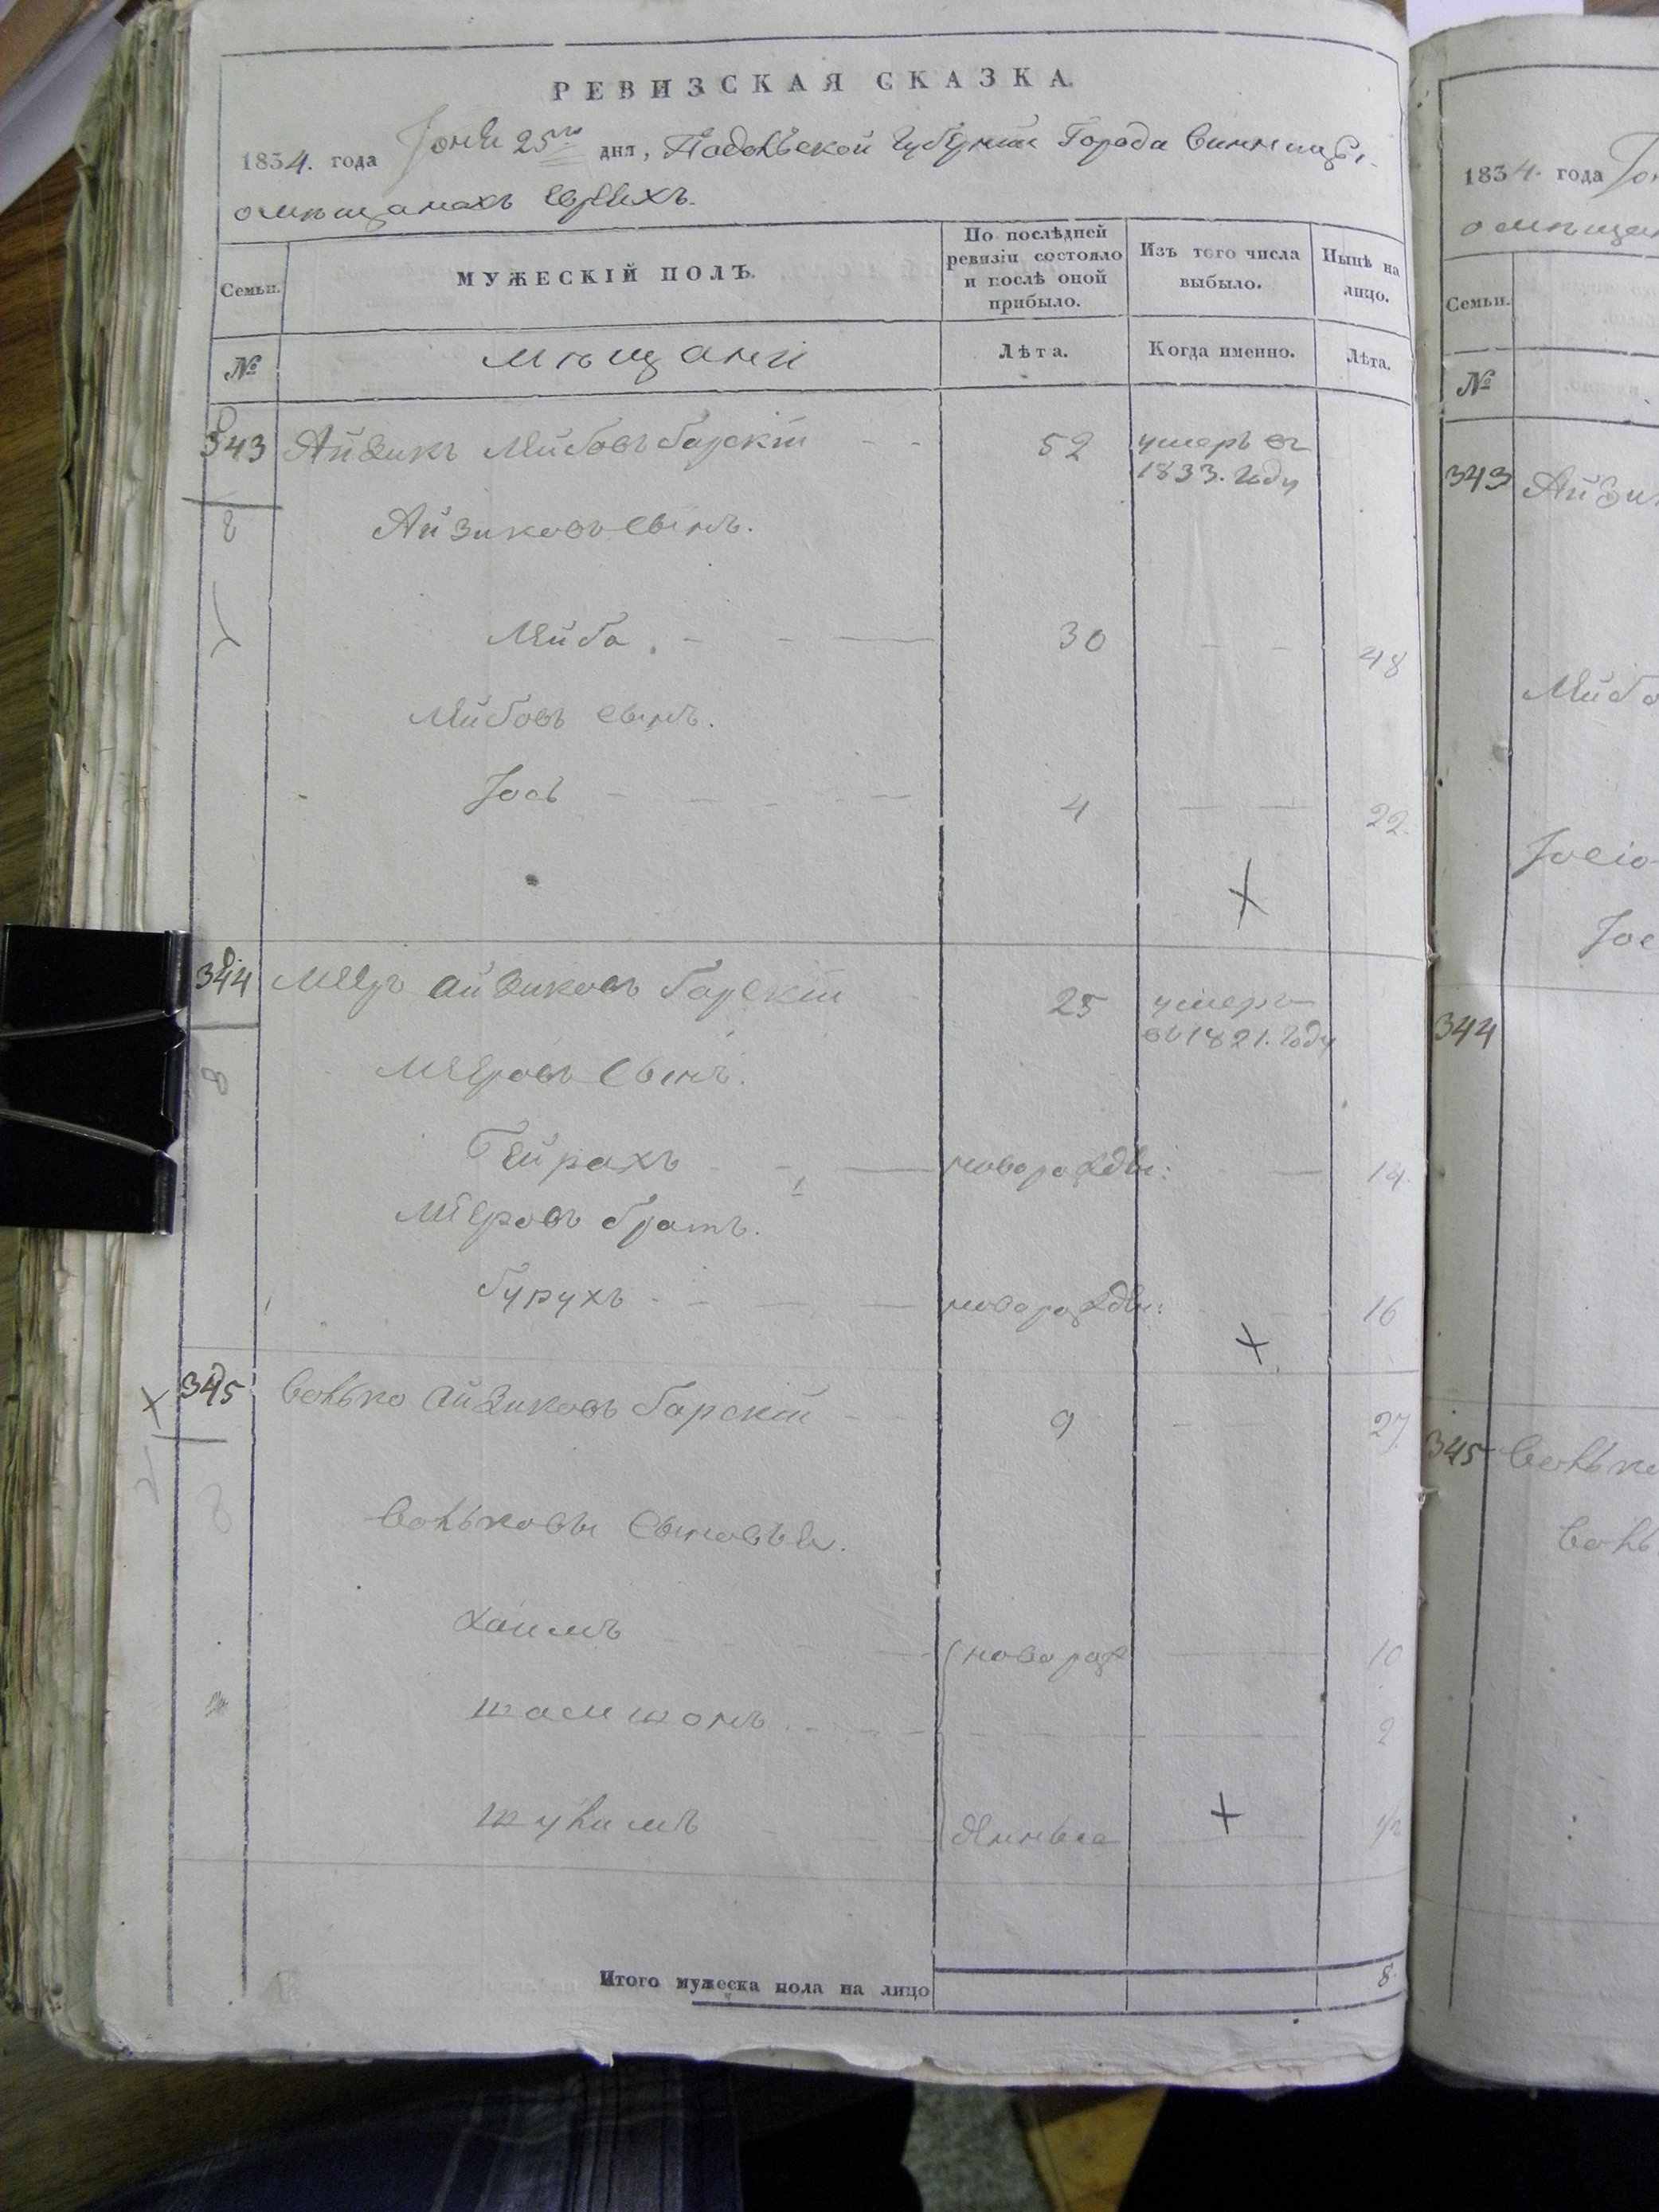 РЕВИЗСКАЯ СКАЗКА.
1834. года Іюня 25го дня, Подольской Губерніи Города Винницы
о мѣщанахъ евреяхъ.
Семьи. МУЖЕСКІЙ ПОЛЪ. По послѣдней ревизіи состояло и послѣ оной прибыло. Изъ того числа выбыло. Нынѣ на лицо.
№ мѣщане Лѣта. Когда именно. Лѣта.
343 Айзикъ Лейбовъ Барскій 52 умеръ въ
1833. году
Айзиковъ сынъ.
Лейба 30 48
Лейбовъ сынъ.
Іось 4 22.
344 Мееръ Айзиковъ Барскій 25 умеръ
въ 1821. году
Меровъ сынъ.
Бейрахъ новорожден: 14.
Меровъ братъ.
Бурухъ новорожден: 16
345 Волько Айзиковъ Барскій 9 27
Вольковы сыновья.
Хаимъ новорож 10
шамшонъ 2
шулимъ 1/2
Итого мужеска пола на лицо 8.
1834. года
о мѣщан
Семьи.
№
343 Айзик
Лейбо
344
345 Волько
Воль